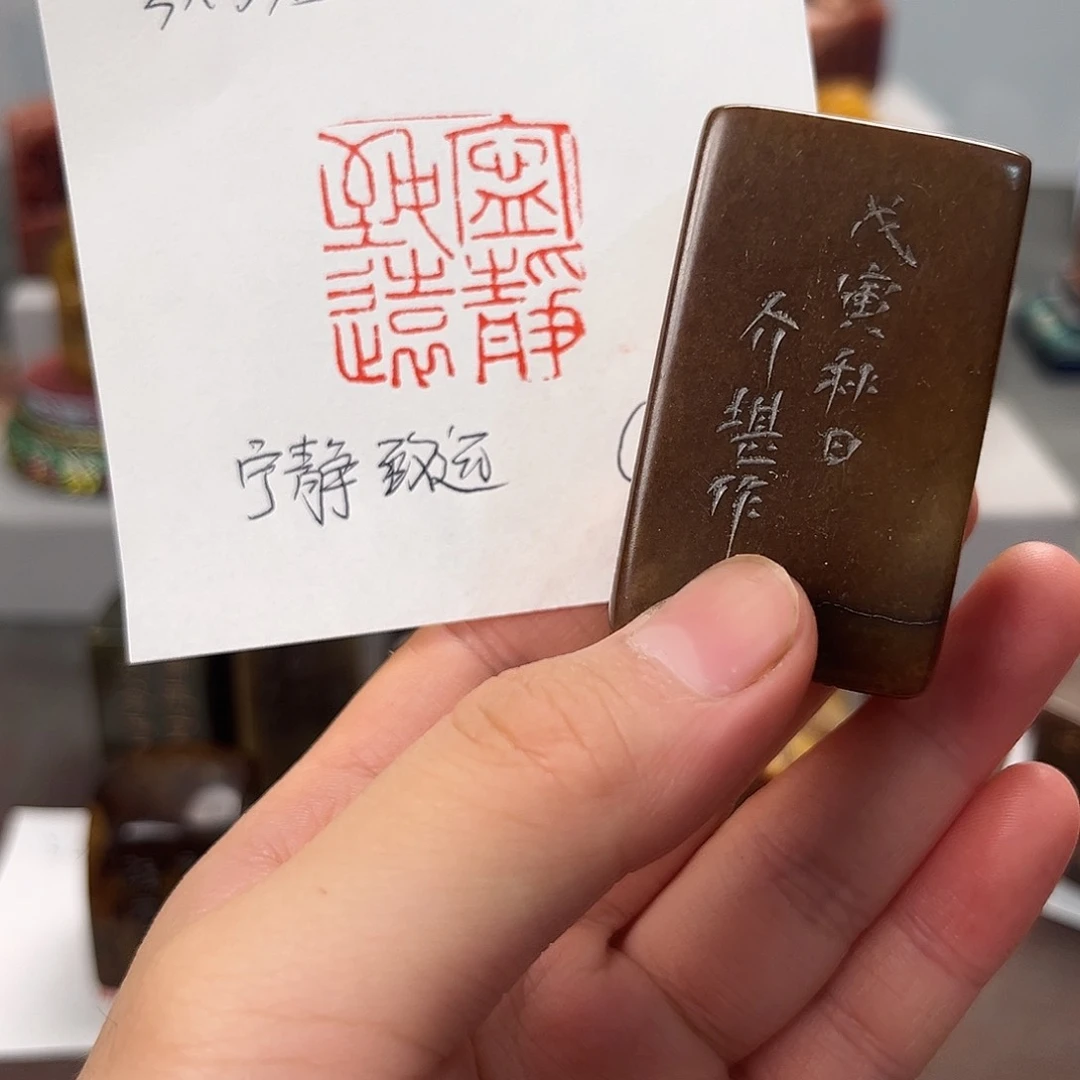 寧靜
致遠
宁静致远
戊寅秋日
介堪作